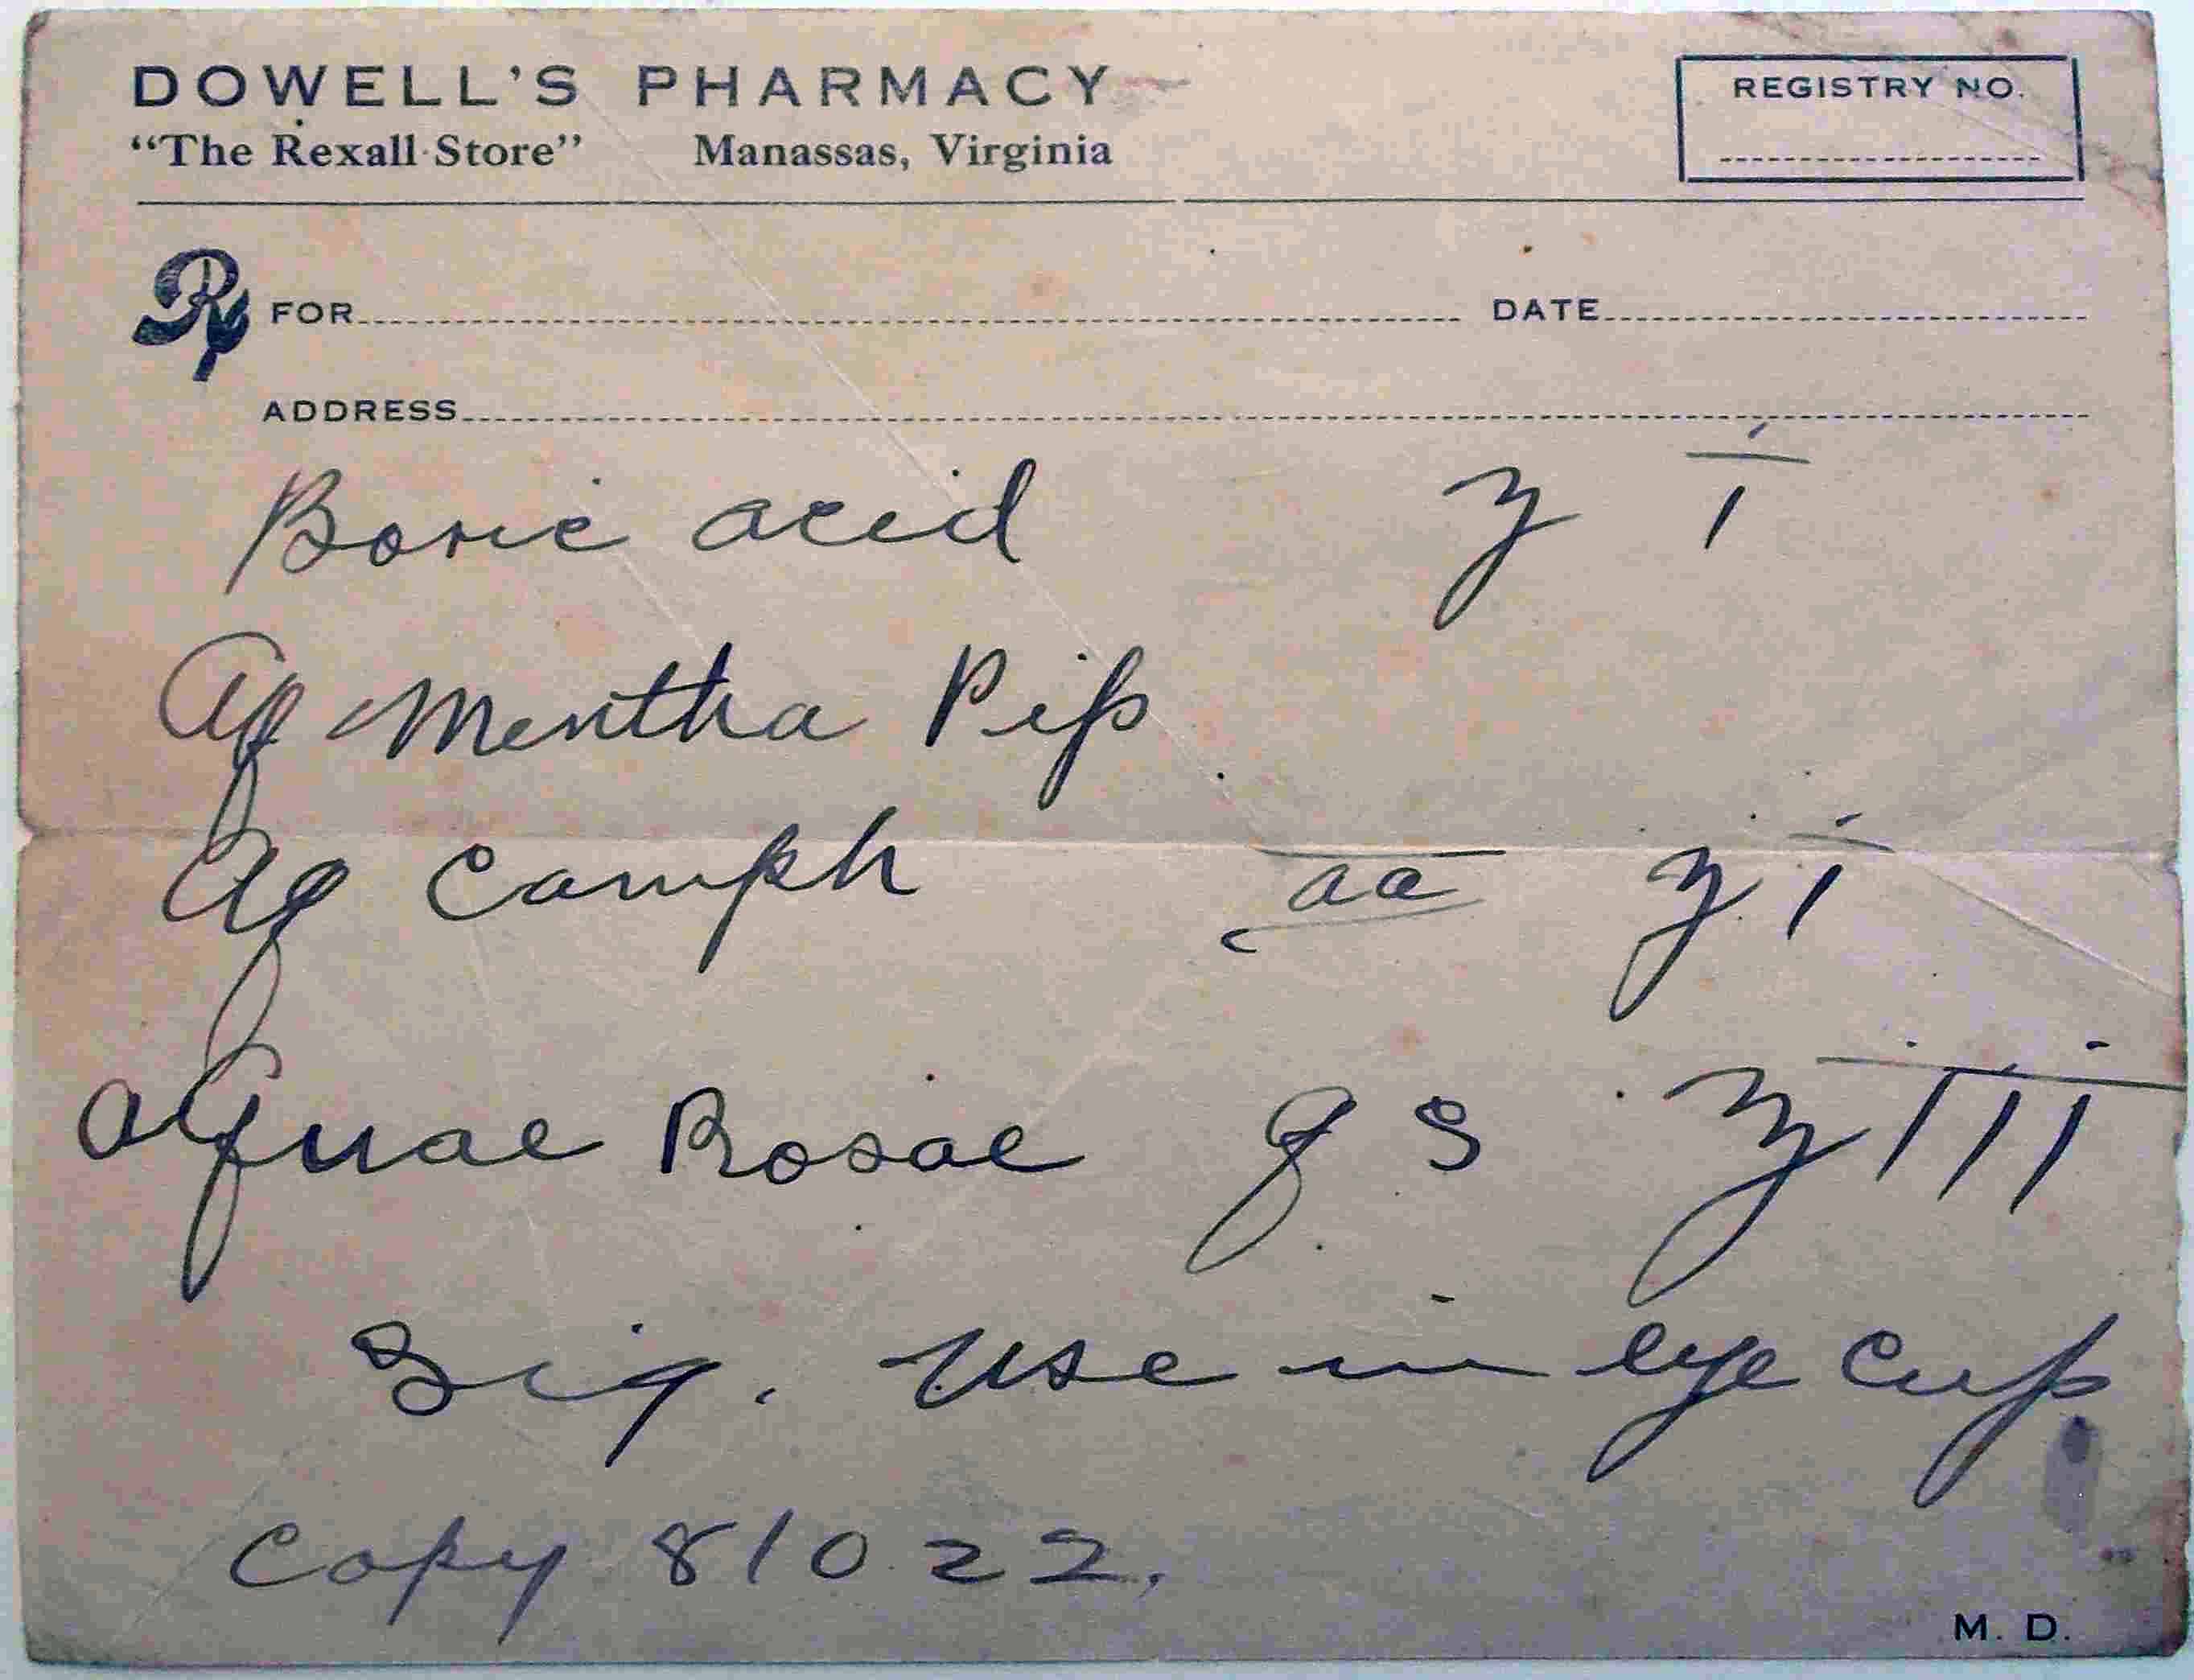 DOWELL'S PHARMACY
"The Rexall Store" Manassas, Virginia
REGISTRY NO.
Rx FOR DATE
ADDRESS
Boric acid ʒ i
Aq Mentha Pip
Aq Camph aa ʒ i
Aquae Rosae q s ʒ iii
Sig. Use in eye cup
Copy 81022.
M. D.